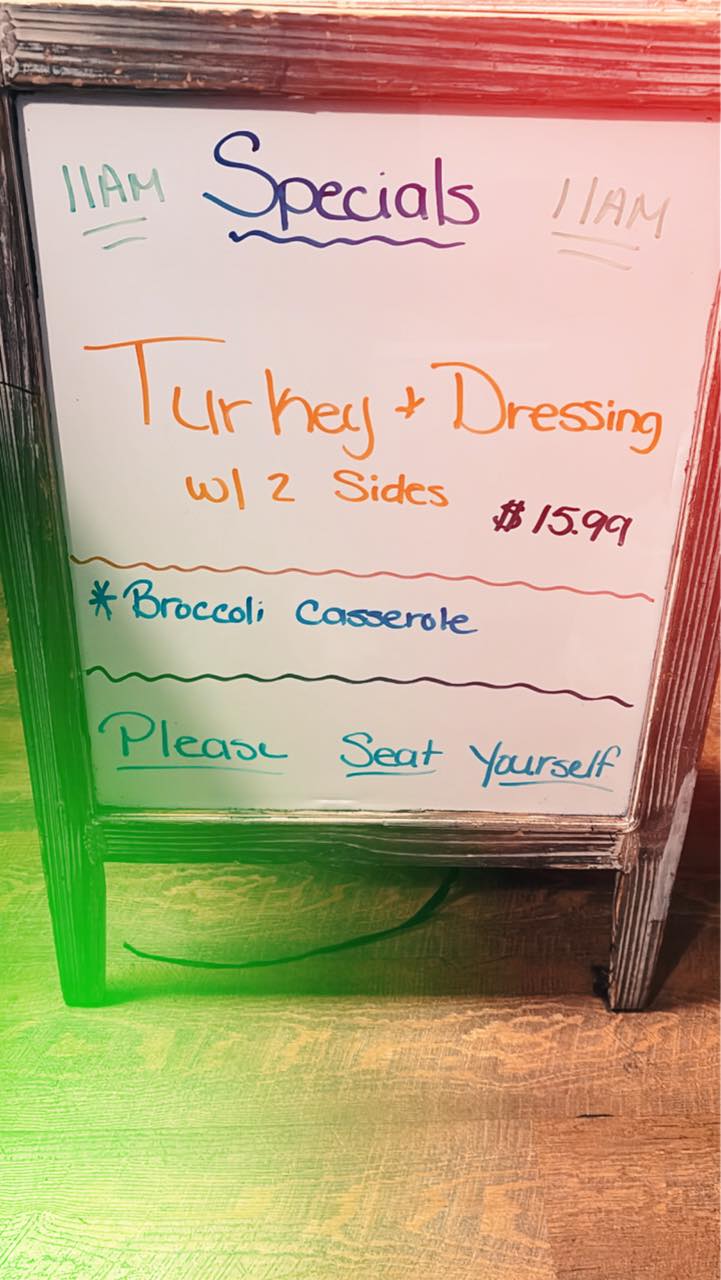 11AM Specials 11AM
Turkey + Dressing
w/ 2 Sides
$15.99
* Broccoli Casserole
Please Seat Yourself